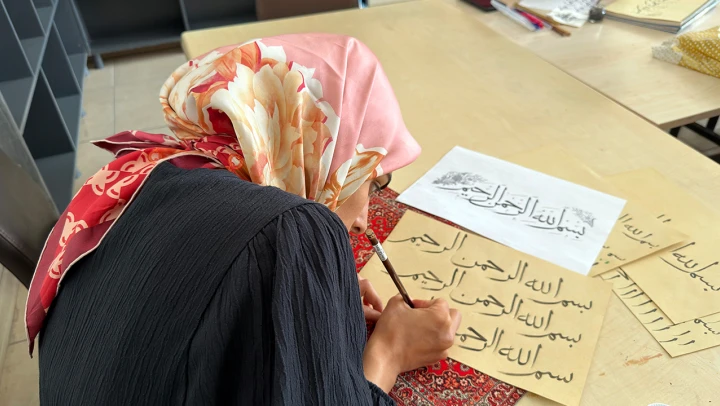 بسم الله الرحمن الرحيم
بسم الله الرحمن الرحيم
بسم الله الرحمن الرحيم
بسم الله
بسم الله
بسم الله